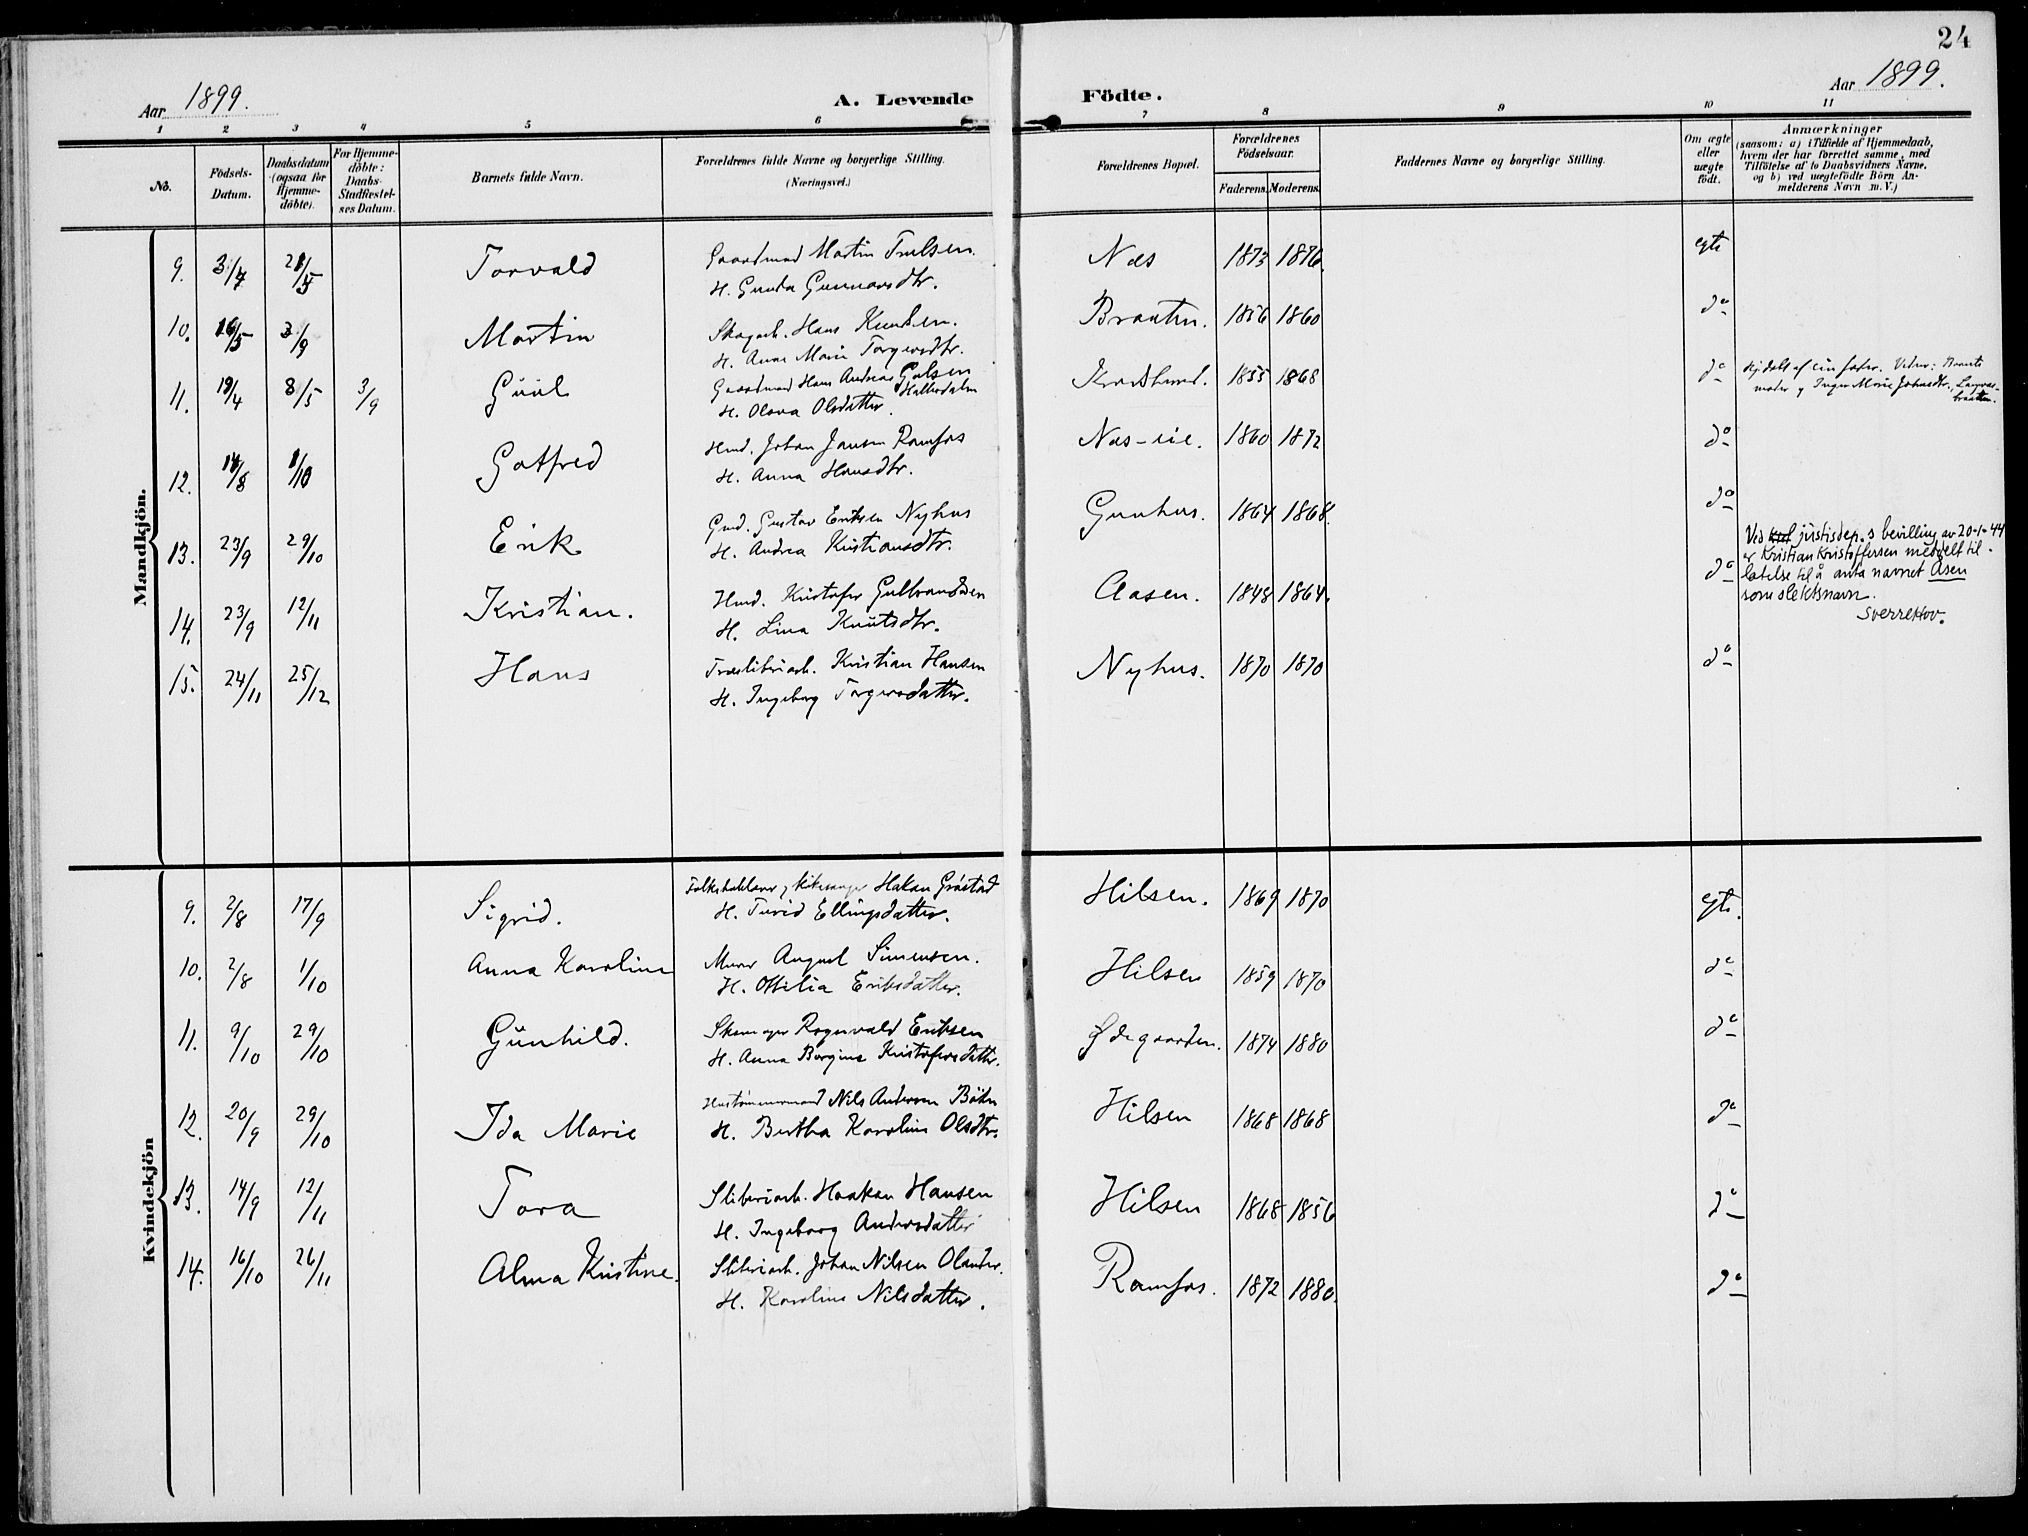 24
Aar 1899.
A. Levende
Födte.
Aar 1899.
1 2 3 4 5 6 7 8 9 10 11
No.
Födsels-
Datum.
Daabsdatum
(ogsaa for
Hjemme-
döbte).
For Hjemme-
döbte:
Daabs-
Stadfæstel-
ses Datum.
Barnets fulde Navn.
Forældrenes fulde Navne og borgerlige Stilling.
(Næringsvei.)
Forældrenes Bopæl.
Forældrenes
Födselsaar.
Faderens. Moderens.
Faddernes Navne og borgerlige Stilling.
Om ægte
eller
uægte
født.
Anmærkninger
(saasom: a) i Tilfælde af Hjemmedaab,
hvem der har forrettet samme, med
Tilföielse af to Daabsvidners Navne,
og b) ved uægtefödte Börn An-
melderens Navn m. V.)
Mandkjön.
9. 3/7 Torvald Gaardmand Martin Trulsen. Næs 1873 1876. egte
H. Gunda Gunnarsdtr.
10. 16/5 3/9 Martin Skogarb. Hans Knudsen. Braaten. 1856 1860 do
H. Anne Marie Torgersdtr.
11. 19/4 8/5 3/9 Güül Gaardmand Hans Andreas Gulsen 1855 1868 do
Hallerdalen
H. Olava Olsdatter
12. 14/8 1/10 Gotfred Hmd. Johan Jansen Ramfos Næs-eie. 1860 1872 do
H. Anna Hansdtr.
13. 23/9 29/10 Erik Gmd. Gustav Eriksen Nyhus Gunhus. 1864 1868. do
H. Andrea Kristiansdtr.
14. 23/9 12/11 Kristian. Hmd. Kristofer Gulbrandsen Aasen. 1848 1864. do
H. Lina Knutsdtr.
Ved justisdep.s bevilling av 20-1-44
er Kristian Kristoffersen meddelt til-
latelse til å anta navnet Åsen
som slektsnavn.
Sverre Hov.
15. 24/11 25/12 Hans Træsliberiarb. Kristian Hansen Nyhus. 1870 1870 do
H. Ingeborg Torgersdatter.
Kvindekjön
9. 2/8 17/9 Sigrid. Folkeskolelærer og kirkesanger Hakon Gråstad Hilsen. 1869 1870 egte.
H. Turid Ellingsdatter.
10. 2/8 1/10 Anna Karoline Murer August Simensen. Hilsen 1859 1870 do
H. Ottilia Eriksdatter.
11. 9/10 29/10 Günhild. Skomager Rognvald Eriksen Ødegaarden. 1874 1880 do
H. Anna Borgine Kristofersdatter.
12. 20/9 29/10 Ida Marie Hustømmermand Nils Andersen Böhn Hilsen 1868 1868 do
H. Bertha Karoline Olsdtr.
13. 14/9 12/11 Tora Sliberiarb. Haakon Hansen Hilsen 1868 1856 do
H. Ingeborg Andersdatter
14. 16/10 26/11 Alma Kristine. Sliberiarb. Johan Nilsen Olander. Ramfos. 1872 1880. do
H. Karoline Nilsdatter.